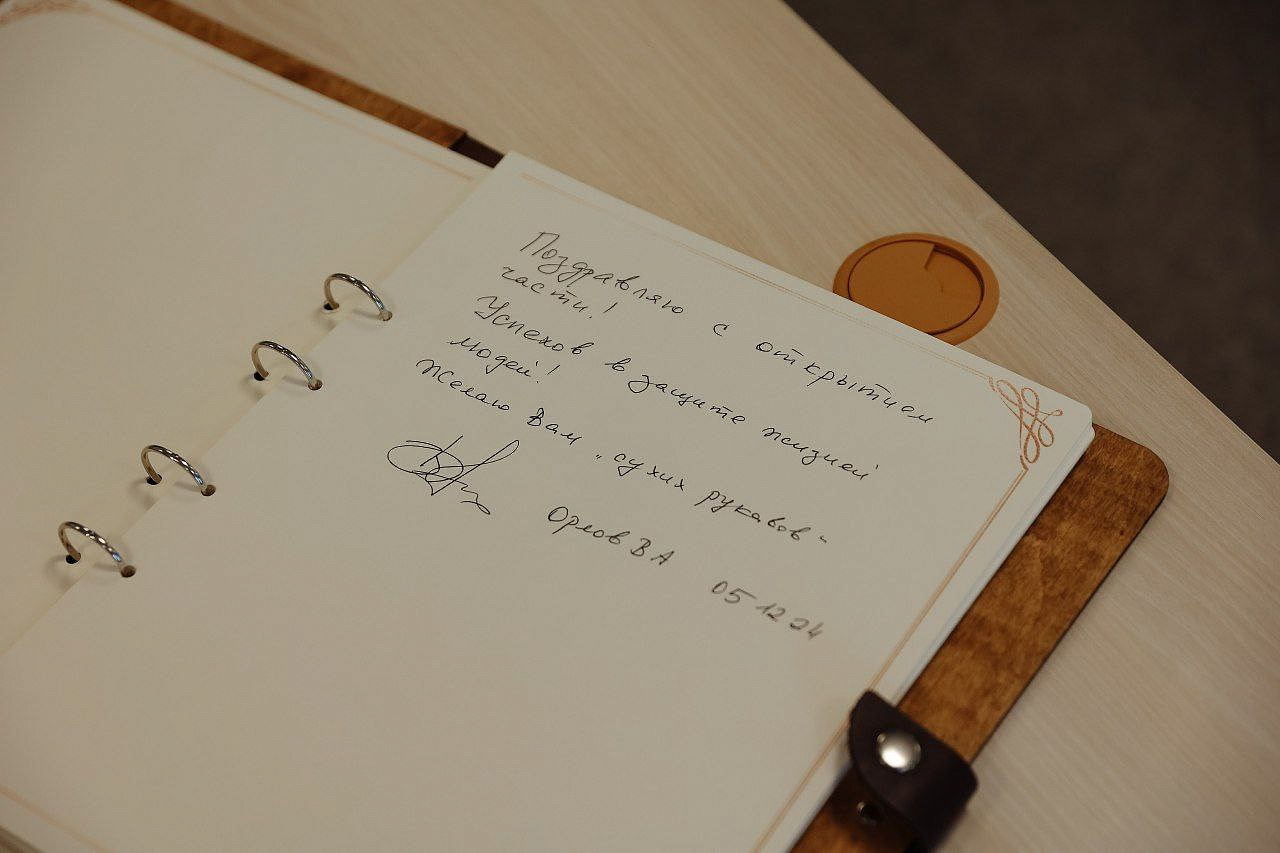 Поздравляю с открытием
части!
Успехов в защите жизней
людей!
Желаю Вам „сухих рукавов“
Орлов В А 05 12 24